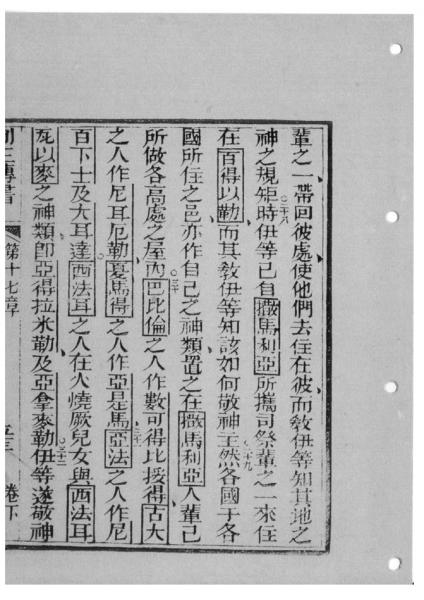 輩之一帶回彼處使他們去住在彼而教伊等知其地之
神之規矩時伊等已自撒馬利亞所攜司祭輩之一來住
二十八
在百得以勒而其教伊等知該如何敬神主然各國于各
二十九
國所住之邑亦作自己之神類置之在撒馬利亞人輩已
所做各高處之屋內巴比倫之人作數可得比挼得古大
三十
之人作尼耳厄勒夏馬得之人作亞是馬亞法之人作尼
三十一
百下士及大耳達西法耳之人在火燒厥兒女與西法耳
瓦以麥之神類即亞得拉米勒及亞拿麥勒伊等遂敬神
三十二
第十七章
卷下